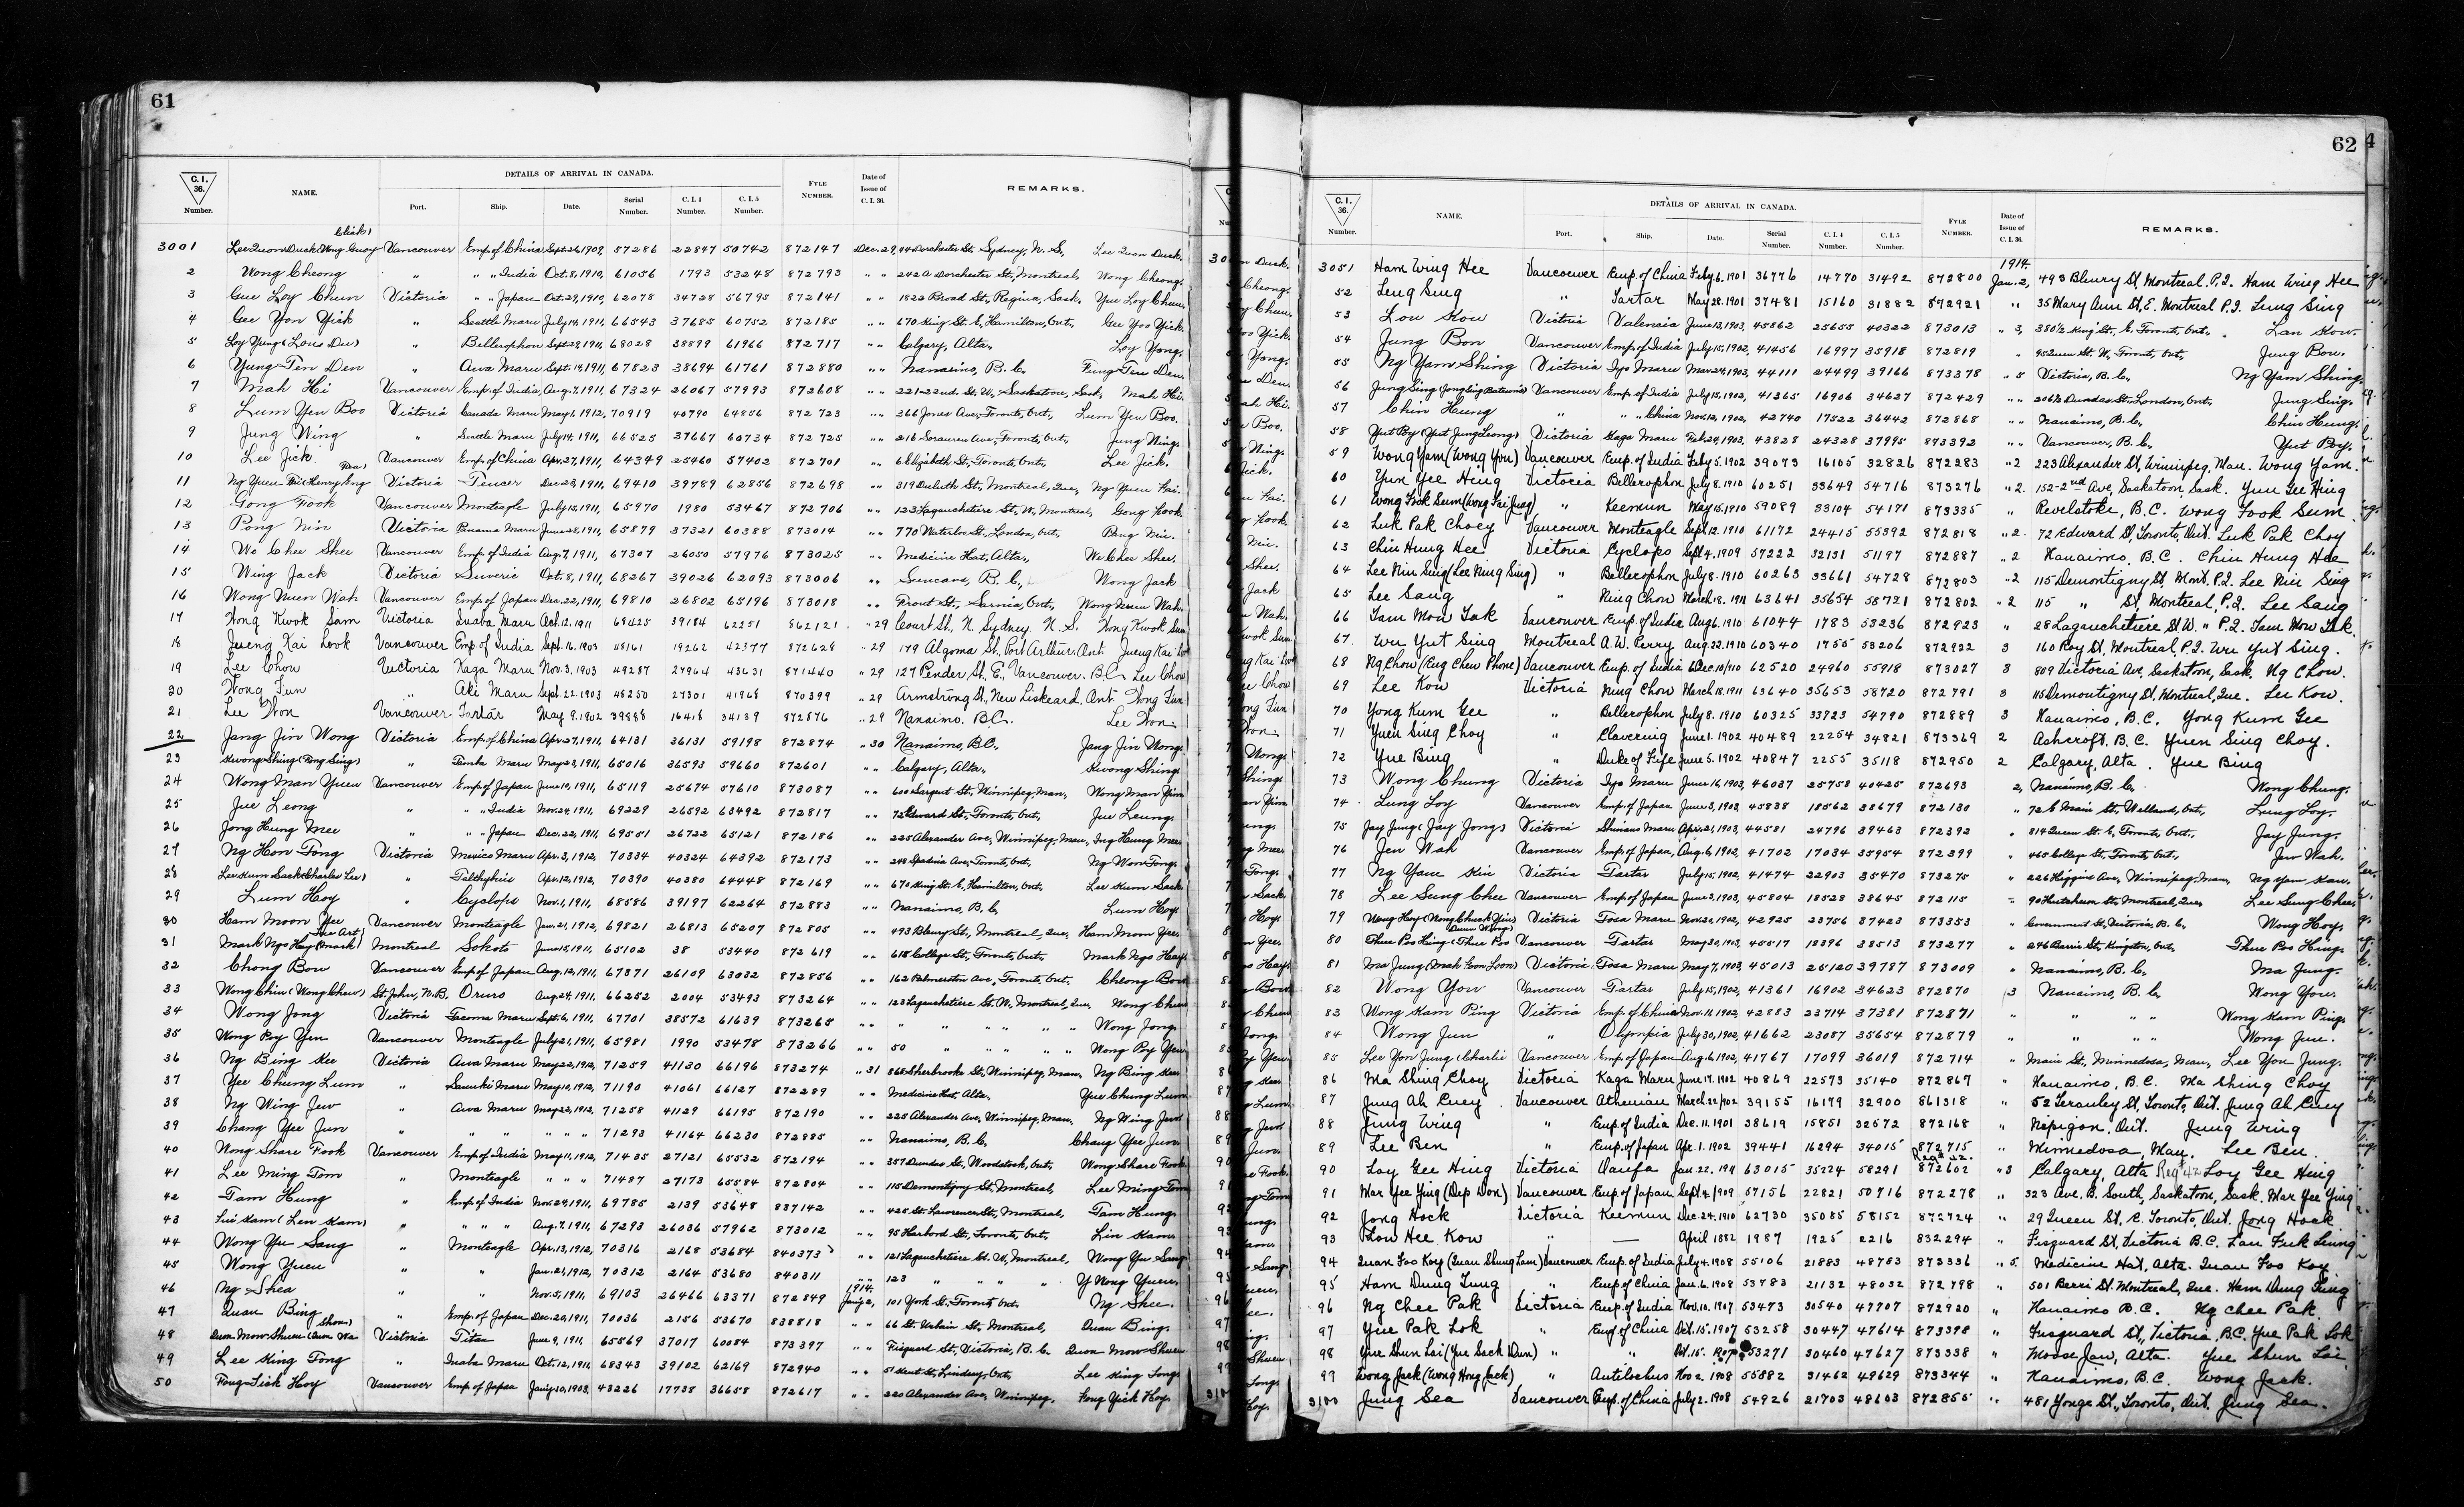 61
C. I. 36. Number.
NAME.
DETAILS OF ARRIVAL IN CANADA.
Port. Ship. Date. Serial Number. C. I. 4 Number. C. I. 5 Number.
FYLE NUMBER.
Date of Issue of C. I. 36.
REMARKS.
3001 Lee Quon Duck Vancouver Emp. of China Sept. 26, 1909, 57286 22847 50742 872147 Dec. 29, 44 Dorchester St. Sydney, N. S., Lee Quon Duck.
2 Wong Cheong " " " India Oct. 8, 1910, 61056 1793 53248 872793 " " 242A Dorchester St., Montreal, Wong Cheong.
3 Gue Loy Chun Victoria " " Japan Oct. 29, 1910, 62078 34728 56795 872141 " " 1822 Broad St., Regina, Sask. Yue Loy Chun.
4 Gee Yon Yick " Seattle Maru July 14, 1911, 66543 37685 60752 872185 " " 670 King St. E, Hamilton, Ont., Gee Yoo Yick.
5 Loy Yung (Louis Du) " Bellerophon Sept. 29, 1911, 68028 38899 61966 872717 " " Calgary, Alta., Loy Yong.
6 Yung Ten Den " Awa Maru Sept. 19, 1911, 67823 38694 61761 872880 " " Nanaimo, B. C., Yung Ten Den.
7 Mah Hi Vancouver Emp. of India, Aug. 7, 1911, 67324 26067 57993 872608 " " 221-22nd. St. W., Saskatoon, Sask, Mah Hi.
8 Lum Yen Boo Victoria Canada Maru May 1, 1912, 70919 40790 64856 872723 " " 366 Jones Ave., Toronto, Ont., Lum Yen Boo.
9 Jung Wing " Seattle Maru July 14, 1911, 66525 37667 60734 872725 " " 216 Sorauren Ave., Toronto, Ont., Jung Wing.
10 Lee Jick. Vancouver Emp. of China Apr. 27, 1911, 64349 25460 57402 872701 " " 6 Elizabeth St., Toronto, Ont., Lee Jick.
11 Victoria Teucer Dec. 28, 1911, 69410 39789 62856 872698 " " 319 Duluth St., Montreal, Que, Ng Yuen Kai.
12 Gong Fook Vancouver Monteagle July 15, 1911, 65970 1980 53467 872706 " " 123 Lagauchetiere St., W., Montreal, Gong Fook.
13 Pong Nin Victoria Panama Maru June 28, 1911, 65879 37321 60388 873014 " " 770 Waterloo St., London, Ont., Pong Nin.
14 Wo Chee Shee Vancouver Emp. of India Aug. 7, 1911, 67307 26050 57976 873025 " " Medicine Hat, Alta., Wo Chee Shee.
15 Wing Jack Victoria Suveric Oct. 8, 1911, 68267 39026 62093 873006 " " Duncans, B. C., Wong Jack
16 Wong Nuen Wah Vancouver Emp. of Japan Dec. 22, 1911, 69810 26802 65196 873018 " " Front St., Sarnia, Ont., Wong Nuen Wah.
17 Wong Kwok Sam Victoria Inaba Maru Oct. 12. 1911 69425 39184 62251 862121 " 29 Court St., N. Sydney. N. S. Wong Kwok Sam
18 Jueng Kai Look Vancouver Emp of India Sept. 16. 1903 48161 19262 42377 872628 " 29 179 Algoma St. Port Arthur. Ont Jueng Kai Look
19 Lee Chow Victoria Kaga Maru Nov. 3. 1903 49287 27964 43631 871440 " 29 127 Pender St. E., Vancouver. B.C. Lee Chow
20 Wong Fun " Aki Maru Sept. 22. 1903 48250 27301 41968 870399 " 29 Armstrong St., New Liskeard, Ont. Wong Fun
21 Lee Won Vancouver Tartar May 9. 1902 39888 16418 34139 872876 " 29 Nanaimo. B.C. Lee Won
22 Jang Jin Wong Victoria Emp. of China Apr. 27, 1911, 64131 36131 59198 872874 " 30 Nanaimo, B.C., Jang Jin Wong.
23 Kwong Shing (Fong Sing) " Tamba Maru May 23, 1911, 65016 36593 59660 872601 " " Calgary, Alta., Kwong Shing.
24 Wong Man Yuen Vancouver Emp. of Japan June 10, 1911, 65119 25674 57610 873087 " " 600 Sargent St., Winnipeg, Man, Wong Man Yuen
25 Jue Leong " " " India Nov. 24, 1911, 69229 26592 63492 872817 " " 72 Edward St., Toronto, Ont., Jue Leung.
26 Jong Hung Mee " " " Japan Dec. 22, 1911, 69551 26722 65121 872186 " " 225 Alexander Ave, Winnipeg, Man., Ing Hung Mee.
27 Ng Hon Tong Victoria Mexico Maru Apr. 3, 1912, 70334 40324 64392 872173 " " 248 Spadina Ave., Toronto, Ont., Ng Won Tong.
28 Lee Kum Sack (Charlie Lee) " Talthybius Apr. 12, 1912, 70390 40380 64448 872169 " " 670 King St. E, Hamilton, Ont., Lee Kum Sack
29 Lum Hoy " Cyclops Nov. 1, 1911, 68586 39197 62264 872883 " " Nanaimo, B. C, Lum Hoy.
30 Ham Moon Yee Vancouver Monteagle Jan. 21, 1912, 69821 26813 65207 872805 " " 493 Bleury St., Montreal, Que, Ham Moon Yee.
31 Mark Ngo Hay Montreal Sokoto June 15, 1911, 65102 38 53440 872619 " " 618 College St., Toronto, Ont., Mark Ngo Hay.
32 Chong Bow Vancouver Emp of Japan Aug. 12, 1911, 67371 26109 63032 872856 " " 162 Palmerston Ave., Toronto, Ont. Cheong Bow
33 Wong Chin (Wong Chew) St. John, N. B. Oruro Aug. 24, 1911, 66252 2004 53493 873264 " " 123 Lagauchetiere St. W., Montreal, Que, Wong Chew
34 Wong Jong Victoria Tacoma Maru Sept. 6, 1911, 67701 38572 61639 873265 " " " " " " " " Wong Jong.
35 Wong Poy Yen Vancouver Monteagle July 21, 1911, 65981 1990 53478 873266 " " 50 " " " " " Wong Poy Yew
36 Ng Bing Kee Victoria Awa Maru May 22, 1912, 71259 41130 66196 873274 " 31 868 Sherbrooke St., Winnipeg, Man. Ng Bing Kee
37 Yee Chung Lum " Sanuki Maru May 10, 1912, 71190 41061 66127 872289 " " Medicine Hat, Alta, Yue Chung Lum
38 Ng Wing Jew " Awa Maru May 22, 1912, 71258 41129 66195 872190 " " 225 Alexander Ave, Winnipeg, Man, Ng Wing Jew
39 Chang Yee Jun " " " " " " 71293 41164 66230 872885 " " Nanaimo, B. C, Chang Yee Jun.
40 Wong Share Fook Vancouver Emp. of India May 11, 1912, 71435 27121 65532 872194 " " 357 Dundas St., Woodstock, Ont., Wong Share Fook.
41 Lee Ming Tom " Monteagle " " " 71487 27173 65584 872804 " " 115 Demontigny St., Montreal, Lee Ming Tom
42 Tam Hung " Emp of India Nov. 24, 1911, 69785 2139 53648 837142 " " 425 St. Lawrence St., Montreal, Tam Hung.
43 Lui Kam (Len Kam) " " " " Aug. 7, 1911, 67293 26036 57962 873012 " " 95 Harbord St., Toronto, Ont, Lin Kam.
44 Wong Yu Sang " Monteagle Apr. 13, 1912, 70316 2168 53684 840373 " " 121 Lagauchetiere St. W, Montreal, Wong Yu Sang
45 Wong Yuen " " Jan. 21, 1912, 70312 2164 53680 840311 " " 123 " " " " Y Wong Yuen.
46 Ng Shea " " Nov. 5, 1911, 69103 26466 63371 872849 1914. Jan'y 2, 101 York St., Toronto Ont. Ng Shee.
47 Quan Bing " Emp. of Japan Dec. 20, 1911, 70036 2156 53670 838818 " " 66 St. Urbain St., Montreal, Quan Bing.
48 Victoria Titan June 9, 1911, 65569 37017 60084 873397 " " Fisguard St., Victoria, B. C. Quon Mow Shuen
49 Lee King Tong " Inaba Maru Oct. 12, 1911, 68343 39102 62169 872940 " " 51 Kent St., Lindsay, Ont, Lee King Tong.
50 Fong Yick Hoy Vancouver Emp. of Japan Jan'y 10, 1903, 43226 17738 36658 872617 " " 220 Alexander Ave, Winnipeg, Fong Yick Hoy.
62
C. I. 36. Number.
NAME.
DETAILS OF ARRIVAL IN CANADA.
Port. Ship. Date. Serial Number. C. I. 4 Number. C. I. 5 Number.
FYLE NUMBER.
Date of Issue of C. I. 36.
REMARKS.
1914.
3051 Ham Wing Hee Vancouver Emp. of China Feby 6. 1901 36776 14770 31492 872800 Jan. 2, 493 Bleury St, Montreal. P.Q. Ham Wing Hee
52 Leng Sing " Tartar May 28. 1901 37481 15160 31882 872921 " 35 Mary Ann St, E. Montreal P.Q. Lung Sing
53 Lou Kow Victoria Valencia June 13, 1903, 45862 25655 40322 873013 " 3, 380½ King St., E, Toronto, Ont., Lan Kow.
54 Jung Bon Vancouver Emp. of India July 15, 1902, 41456 16997 35918 872819 " 95 Queen St. W, Toronto, Ont, Jung Bow.
55 Ng Yam Shing Victoria Iyo Maru Mar. 24, 1903, 44111 24499 39166 873378 " 5 Victoria, B. C., Ng Yam Shing.
56 Jung Sing Vancouver Emp. of India July 15, 1902, 41365 16906 34627 872429 " " 206½ Dundas St., London, Ont., Jung Sing.
57 Chin Hung " " " China Nov. 12, 1902, 42740 17522 36442 872868 " " Nanaimo, B. C., Chin Hung.
58 Yut Poy (Yut Jung Leong) Victoria Kaga Maru Feb. 24, 1903, 43828 24328 37995 873392 " " Vancouver, B. C., Yut Poy.
59 Wong Yam (Wong You) Vancouver Emp. of India Feby 5. 1902 39073 16105 32826 872283 " 2 223 Alexander St, Winnipeg, Man. Wong Yam.
60 Yun Yee Hing Victoria Bellerophon July 8. 1910 60251 33649 54716 873276 " 2. 152-2nd Ave, Saskatoon, Sask. Yun Gee Hing
61 Wong Fook Sum (Wong Fai Jung) " Keemun May 15. 1910 59089 33104 54171 873335 " Revelstoke, B.C. Wong Fook Sum
62 Luk Pak Choey Vancouver Monteagle Sept. 12. 1910 61172 24415 55392 872818 " 2. 72 Edward St, Toronto, Ont. Luk Pak Choy
63 Chin Hung Hee Victoria Cyclops Sept. 4. 1909 57222 32131 51197 872887 " 2 Nanaimo, B.C. Chin Hung Hee
64 Lee Nin Sing (Lee Ning Sing) " Bellerophon July 8. 1910 60263 33661 54728 872803 " 2 115 Demontigny St, Mont. P.Q. Lee Nin Sing
65 Lee Sang " Ning Chow March 18. 1911 63641 35654 58721 872802 " 2 115 " St, Montreal, P.Q. Lee Sang
66 Tam Mow Tak Vancouver Emp. of India Aug 6. 1910 61044 1783 53236 872923 " 28 Lagauchetiere St W. " P.Q. Tam Mow Tak.
67. Wu Yut Sing Montreal A.W. Perry Aug. 22. 1910 60340 1755 53206 872922 3 160 Roy St, Montreal, P.Q. Wu Yut Sing.
68 Ng Chow Vancouver Emp. of India Dec. 10/10 62520 24960 55918 873027 3 809 Victoria Ave, Saskatoon, Sask. Ng Chow.
69 Lee Kow Victoria Ning Chow March 18. 1911 63640 35653 58720 872791 3 115 Demontigny St. Montreal, Que. Lee Kow.
70 Yong Kum Gee " Bellerophon July 8. 1910 60325 33723 54790 872889 3 Nanaimo, B.C. Yong Kum Gee
71 Yuen Sing Choy " Clavering June 1. 1902 40489 22254 34821 873369 2 Ashcroft. B.C. Yuen Sing Choy.
72 Yue Bing " Duke of Fife June 5. 1902 40847 2255 35118 872950 2 Calgary, Alta. Yue Bing
73 Wong Chung Victoria Iyo Maru June 16, 1903, 46037 25758 40425 872693 2, Nanaimo, B. C. Wong Chung.
74 Lung Loy Vancouver Emp. of Japan June 3, 1903, 45838 18562 38679 872130 " 72 E Main St., Welland, Ont., Lung Loy.
75 Jay Jung (Jay Jong) Victoria Shinano Maru Apr. 21, 1903, 44581 24796 39463 872392 " 814 Queen St. E, Toronto, Ont., Jay Jung.
76 Jen Wah Vancouver Emp. of Japan, Aug. 6, 1902, 41702 17034 35954 872399 " 465 College St., Toronto, Ont., Jen Wah.
77 Ng Yam Kin Victoria Tartar July 15, 1902, 41474 22903 35470 873275 " 226 Higgins Ave, Winnipeg, Man, Ng Yam Kan.
78 Lee Sung Chee Vancouver Emp. of Japan June 3, 1902, 45804 18528 38645 872115 " 90 Hutcheson St., Montreal, Que, Lee Sung Chee.
79 Wong Hoy (Wong Chuck Yin) Victoria Tosa Maru Nov. 20, 1902, 42925 23756 37423 873353 " Government St., Victoria, B. C., Wong Hoy.
80 Thue Poo Hing Vancouver Tartar May 30, 1903, 45517 18396 38513 873277 " 246 Barrie St., Kingston, Ont, Thue Poo Hing.
81 Ma Jung (Mah Goon Loon) Victoria Tosa Maru May 7, 1903, 45013 25120 39787 873009 " Nanaimo, B. C., Ma Jung.
82 Wong You Vancouver Tartar July 15, 1902, 41361 16902 34623 872870 3 Nanaimo, B. C. Wong You.
83 Wong Kam Ping Victoria Emp. of China Nov. 11, 1902, 42883 23714 37381 872871 " " " " Wong Kam Ping.
84 Wong Jun " Olympia July 30, 1902, 41662 23087 35654 872879 " " " " Wong Jun.
85 Lee Yon Jung (Charlie Vancouver Emp. of Japan Aug. 6, 1902, 41767 17099 36019 872714 " Main St., Minnedosa, Man, Lee You Jung.
86 Ma Shing Choy Victoria Kaga Maru June 17. 1902 40869 22573 35140 872867 " Nanaimo, B.C. Ma Shing Choy
87 Jung Ah Cuey Vancouver Athenian March 22/1902 39155 16179 32900 861318 " 52 Teraulay St, Toronto, Ont. Jung Ah Cuey
88 Jung Wing " Emp. of India Dec. 11. 1901 38619 15851 32572 872168 " Nipigon, Ont. Jung Wing
89 Lee Ben " Emp. of Japan Apr. 1. 1902 39441 16294 34015 872715 " Minnedosa, Man. Lee Ben.
90 Loy Gee Hing Victoria Oanfa Jan. 22. 1911 63015 35224 58291 872602 " 3 Calgary, Alta Loy Gee Hing
91 Mar Yee Ying (Dep Don) Vancouver Emp. of Japan Sept. 4/1909 57156 22821 50716 872278 " 323 Ave. B. South, Saskatoon, Sask. Mar Yee Ying
92 Jong Hock Victoria Keemun Dec. 24. 1910 62730 35085 58152 872724 " 29 Queen St. E. Toronto, Ont. Jong Hock.
93 Lou Hee Kow " — April 1882 1987 1925 2216 832294 " Fisguard St, Victoria B.C. Lau Fuk Leung
94 Quan Foo Koy (Quan Shung Lam) Vancouver Emp. of India July 4. 1908 55106 21883 48763 873336 " 5. Medicine Hat, Alta. Quan Foo Koy
95 Ham Dung Lung " Emp of China Jan. 6. 1908 53783 21132 48032 872798 " 501 Berri St. Montreal, Que. Ham Dung Lung
96 Ng Chee Pak Victoria Emp. of India Nov. 10. 1907 53473 30540 47707 872920 " Nanaimo B.C. Ng Chee Pak
97 Yue Pak Lok " Emp. of China Oct. 15. 1907 53258 30447 47614 873398 " Fisguard St, Victoria, B.C. Yue Pak Lok
98 Yue Shun Lai (Yue Sack Dun) " " Oct. 15. 1907 53271 30460 47627 873338 " Moose Jaw, Alta. Yue Shun Lai
99 Wong Jack (Wong Hong Jack) " Antilochus Nov 2. 1908 55882 31462 49629 873344 " Nanaimo, B.C. Wong Jack.
3100 Jung Sea Vancouver Emp. of China July 2. 1908 54926 21703 48603 872855 " 481 Yonge St., Toronto, Ont. Jung Sea.